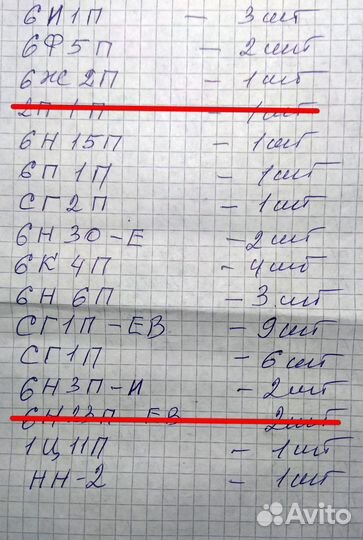 6И1П - 3шт
6Ф5П - 2шт
6Ж2П - 1шт
2П1П - 1шт
6Н15П - 1шт
6П1П - 1шт
СГ2П - 1шт
6Н30-Е - 2шт
6К4П - 4шт
6Н6П - 3шт
СГ1П-ЕВ - 9шт
СГ1П - 6шт
6Н3П-И - 2шт
6Н23П-ЕВ 2шт
1Ц11П - 1шт
НН-2 - 1шт
Avito